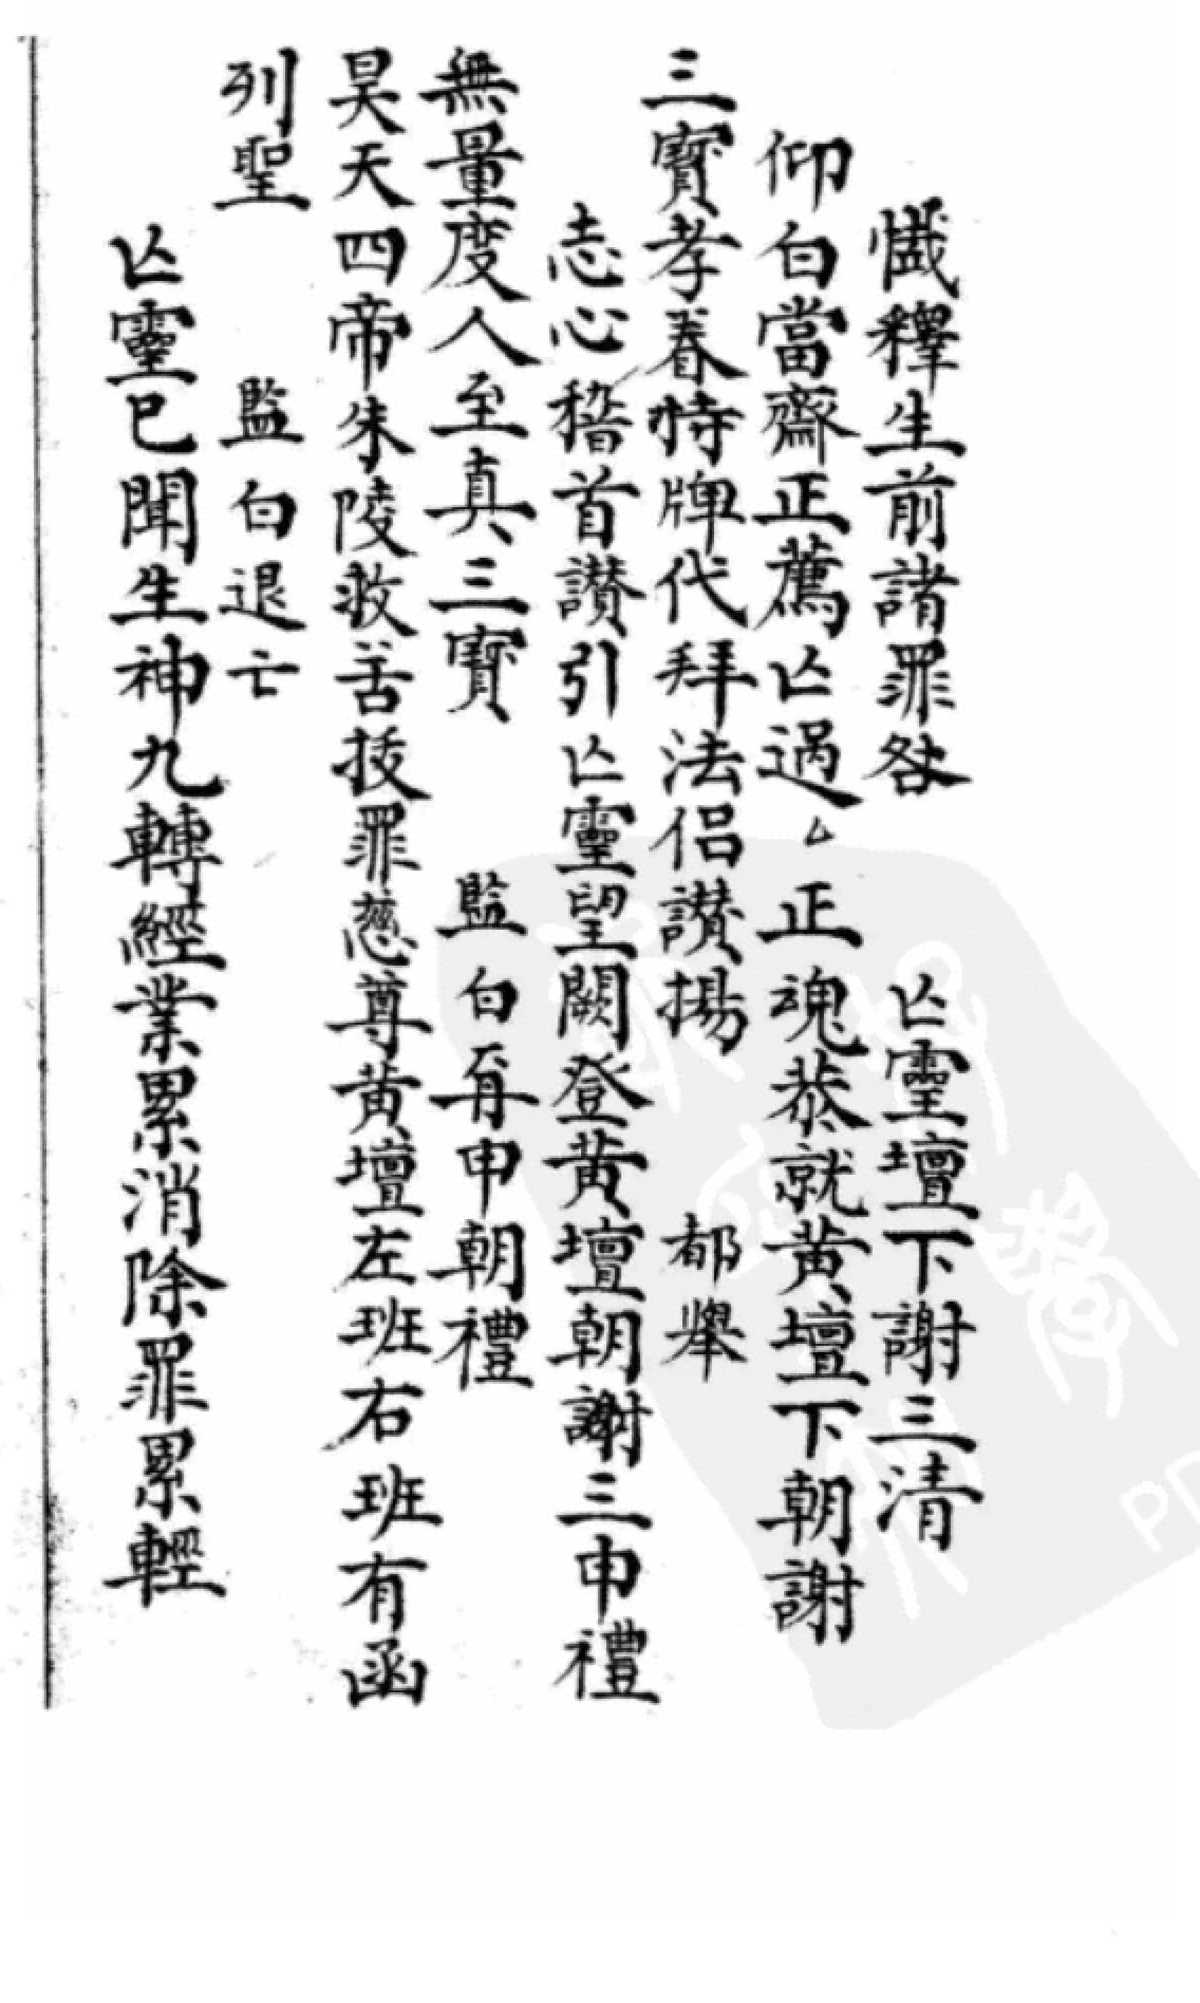 懴釋生前諸罪咎　亾靈壇下謝三清
仰白當齋正薦亾過厶正魂恭就黄壇下朝謝
三寳孝眷恃牌代拜法侣讃揚　都舉
志心稽首讃引亾靈望闕登黄壇朝謝三申禮
無量度人至真三寳　監白再申朝禮
昊天四帝朱陵救苦拔罪慈尊黄壇左班右班有函
列聖　監白退亡
亾靈已聞生神九轉經業累消除罪累輕